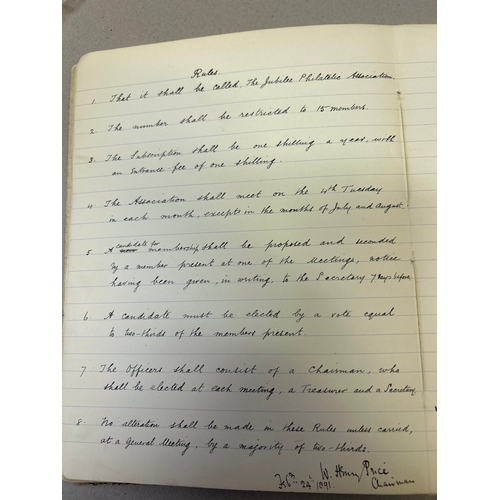 Rules.
1. That it shall be called, The Jubilee Philatelic Association.
2. The number shall be restricted to 15 members.
3. The Subscription shall be one shilling a year, with
an Entrance-fee of one shilling.
4. The Association shall meet on the 4th Tuesday
in each month, excepts in the months of July and August.
candidate for
5. A membership shall be proposed and seconded
by a member present at one of the Meetings, notice
having been given, in writing, to the Secretary 7 days before.
6. A candidate must be elected by a vote equal
to two-thirds of the members present.
7. The Officers shall consist of a Chairman, who
shall be elected at each meeting, a Treasurer and a Secretary.
8. No alteration shall be made in these Rules unless carried,
at a General Meeting, by a majority of two-thirds.
W. Henry Price
Feb. 24 1891. Chairman